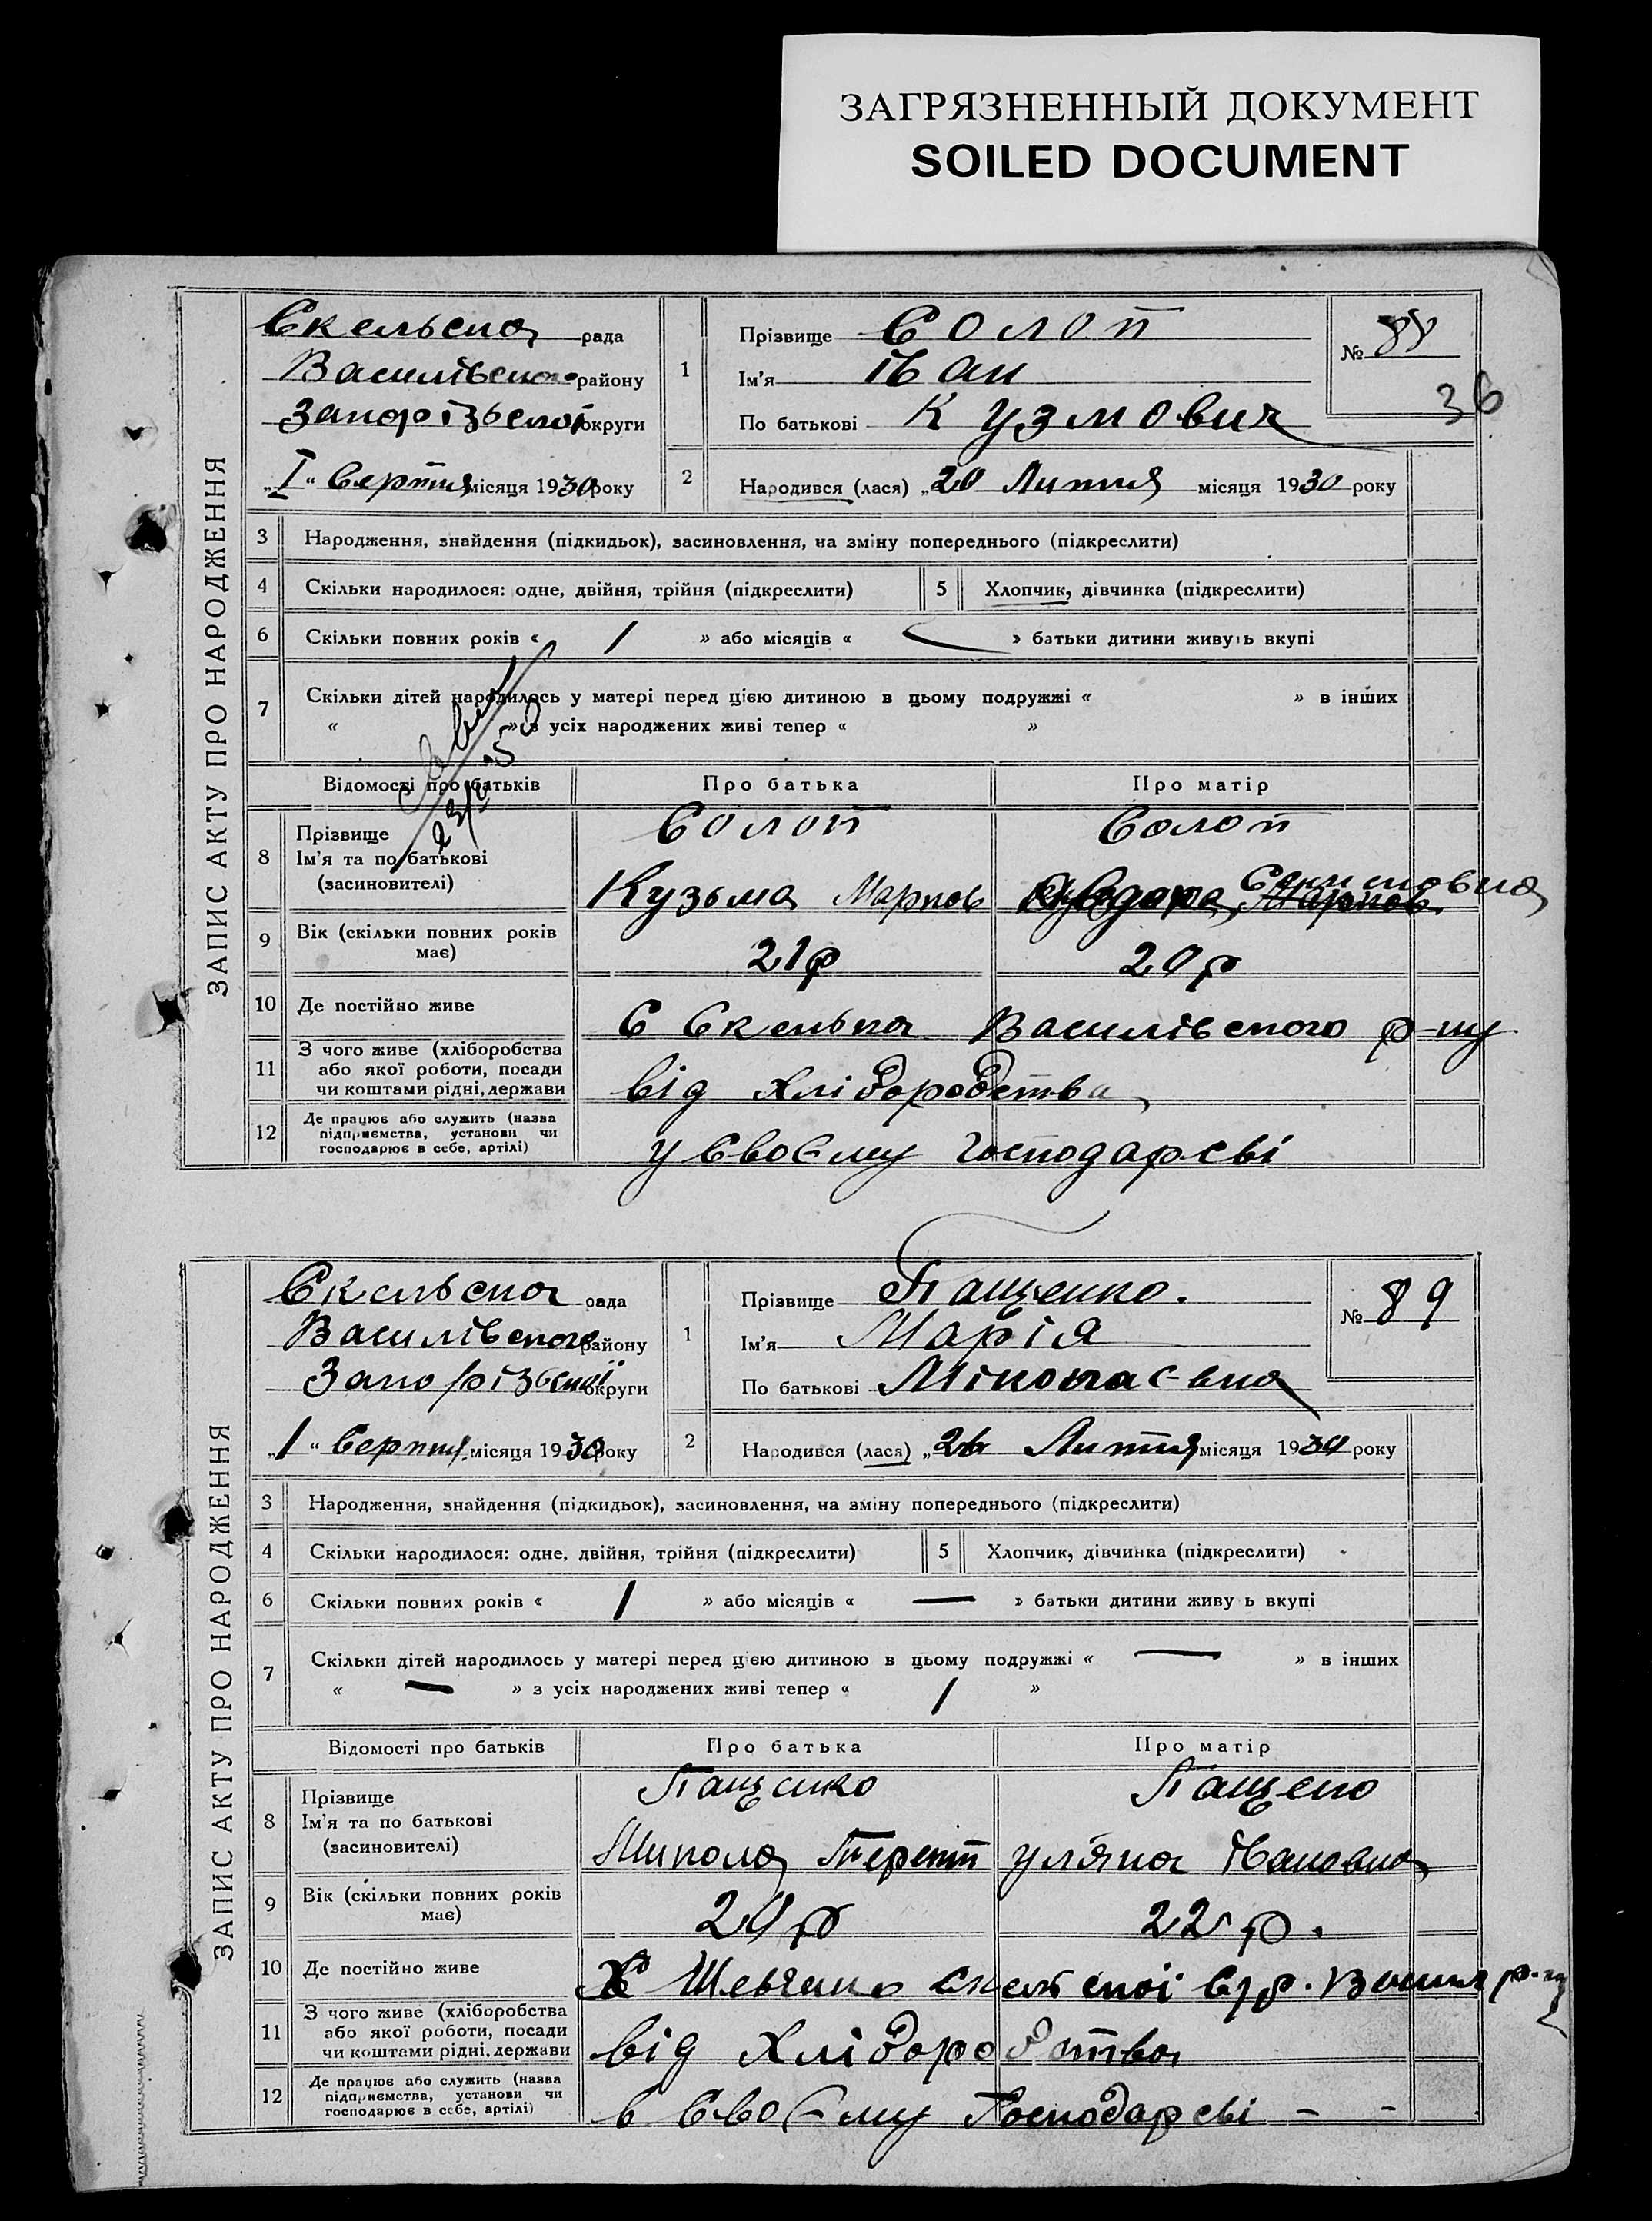 ЗАГРЯЗНЕННЫЙ ДОКУМЕНТ
SOILED DOCUMENT
ЗАПИС АКТУ ПРО НАРОДЖЕННЯ
Скельська рада
Василівського району
Запорізської округи
„I“ Серпня місяця 1930 року
1 Прізвище Солоп
Ім'я Іван
По батькові Кузмович
№ 88
36
2 Народився (лася) „20 Липня місяця 1930 року
3 Народження, знайдення (підкидьок), засиновлення, на зміну попереднього (підкреслити)
4 Скільки народилося: одне, двійня, трійня (підкреслити) 5 Хлопчик, дівчинка (підкреслити)
6 Скільки повних років « 1 » або місяців « — » батьки дитини живуть вкупі
7 Скільки дітей народилось у матері перед цією дитиною в цьому подружжі « » в інших
« » з усіх народжених живі тепер « »
Відомості про батьків Про батька Про матір
8 Прізвище Солоп Солоп
Ім'я та по батькові
(засиновителі) Кузьма Марков
9 Вік (скільки повних років має) 21 р 20 р
10 Де постійно живе С Скелька Василівского р-ну
11 З чого живе (хліборобства
або якої роботи, посади
чи коштами рідні, держави від хліборобства
12 Де працює або служить (назва
підприємства, установи чи
господарює в себе, артілі) у своєму господарсві
ЗАПИС АКТУ ПРО НАРОДЖЕННЯ
Скельська рада
Василівського району
Запорізської округи
„1“ Серпня місяця 1930 року
1 Прізвище Пащенко.
Ім'я Марія
По батькові Міколаєвна
№ 89
2 Народився (лася) „26 Липня місяця 1930 року
3 Народження, знайдення (підкидьок), засиновлення, на зміну попереднього (підкреслити)
4 Скільки народилося: одне, двійня, трійня (підкреслити) 5 Хлопчик, дівчинка (підкреслити)
6 Скільки повних років « 1 » або місяців « — » батьки дитини живу ь вкупі
7 Скільки дітей народилось у матері перед цією дитиною в цьому подружжі « — » в інших
« — » з усіх народжених живі тепер « 1 »
Відомості про батьків Про батька Про матір
8 Прізвище Пащенко Пащеко
Ім'я та по батькові
(засиновителі) Микола Терент Уляна Івановна
9 Вік (скільки повних років має) 20 р 22 р.
10 Де постійно живе Х Шевченко Скельскої с/р. Васил р-ну
11 З чого живе (хліборобства
або якої роботи, посади
чи коштами рідні, держави від хліборобства
12 Де працює або служить (назва
підприємства, установи чи
господарює в себе, артілі) в своєму господарсві - -